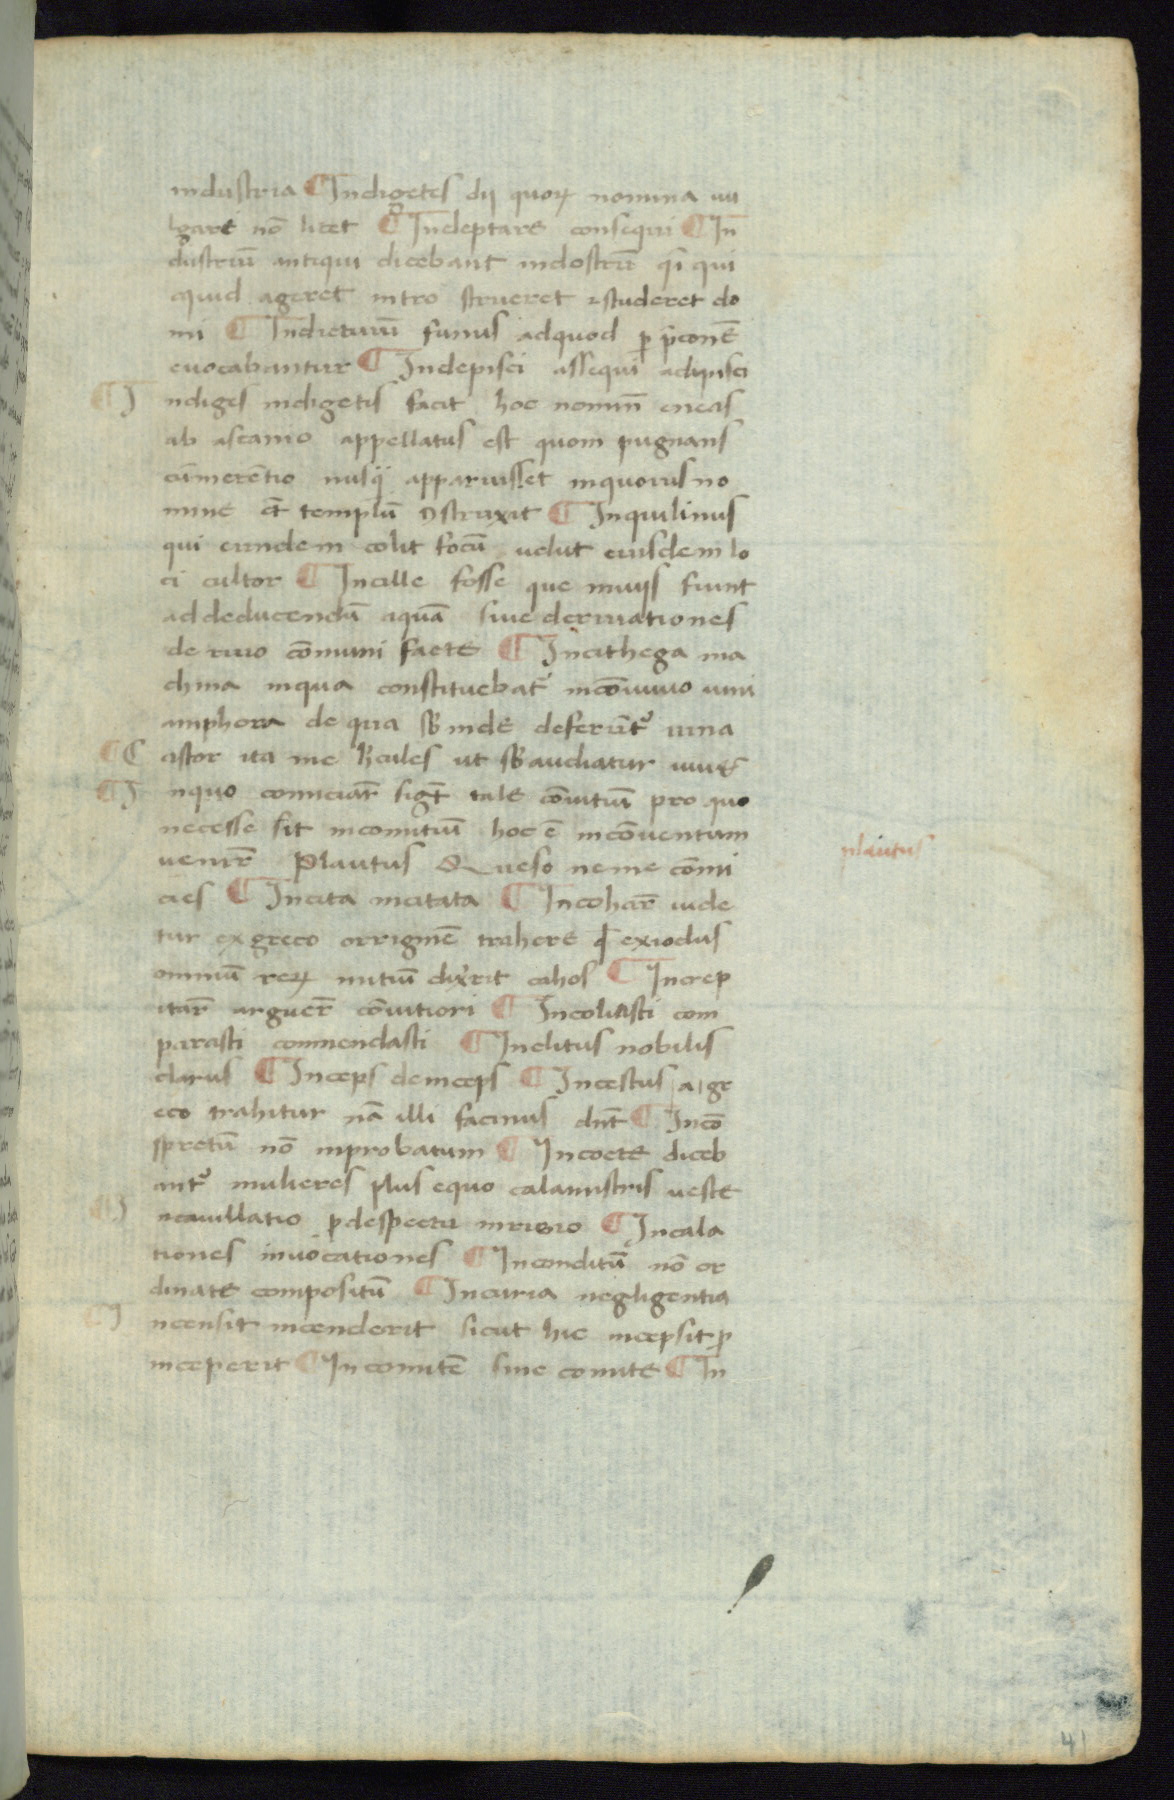 industria ¶ Indigetes dij quoꝝ nomina uu
lgare nō licet ¶ Indeptare consequi ¶ In
dustriū antiqui dicebant indostrū qi qui
cquid ageret intro strueret ⁊ studeret do
mi ¶ Indictiuū funus adquod p p̄conē
euocabantur ¶ Indepisci assequi adipisci
¶ I ndiges indigetis facit hoc nomin̄ eneas
ab ascanio appellatus est quom pugnans
cū merētio nusq̄ apparuisset inquoius no
mine et templū ꝯstruxit ¶ Inquilinus
qui eundem colit focū uelut eiusdem lo
ci cultor ¶ Incille fosse que inuijs fiunt
ad deducendū aquā siue deriuationes
de riuo cōmuni facte ¶ Incithega ma
china inqua constituebat᷑ incōuiuio uini
amphora de qua sƀinde deferūt᷑ uina
¶ E castor ita me hcules ut sƀaudiatur iuuet
¶ I nquo conuiciar̄ sigt̄ tale cōuitiū pro quo
necesse sit incomitiū hoc ē incōuentum
uenir̄ Plautus Queso neme cōmi
cies ¶ Incita incitata ¶ Incohar̄ uide
tur ex greco orriginē trahere qd exiodus
omniū reꝝ initiū dixrit cahos ¶ Increp
itar̄ arguer̄ cōuitiori ¶ Incoliasti com
parasti commendasti ¶ Inclitus nobilis
clarus ¶ Inceps deinceps ¶ Incestus a gr
eco trahitur nā illi facinus dnt̄ ¶ Incō
spretū nō inprobatum ¶ Incocte diceb
ant᷑ mulieres plus equo calamistris ueste
¶ I ncauillatio p despectu inrisio ¶ Incala
tiones inuocationes ¶ Inconditū nō or
dinate compositū ¶ Incuria negligentia
¶ I ncensit incenderit sicut hic incepsit p
inceperit ¶ Incomitē sine comite ¶ In
plautus
41